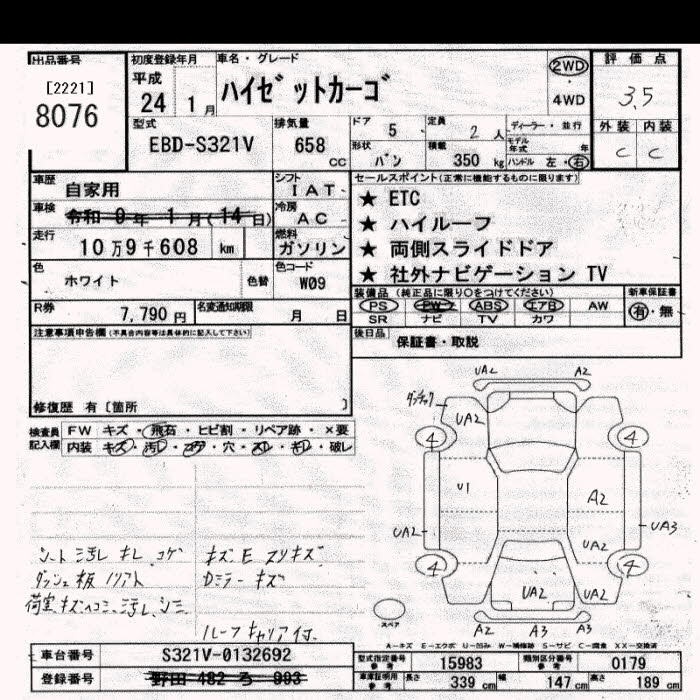 出品番号
[2221]
8076
初度登録年月
平成
24年 1月
車名・グレード
ハイゼットカーゴ
2WD
4WD
評価点
3.5
外装 内装
C C
型式
EBD-S321V
排気量
658 CC
ドア 5
形状 バン
定員 2人
積載 350 kg
ディーラー・並行
モデル年式 年
ハンドル 左・右
車歴 自家用
シフト IAT
車検 令和 0年 1月(14日)
冷房 AC
走行 10万9千608 km
燃料 ガソリン
色 ホワイト 色替
色コード W09
R券 7,790円
名変通知期限 月 日
セールスポイント(正常に機能するものに限ります)
★ ETC
★ ハイルーフ
★ 両側スライドドア
★ 社外ナビゲーション TV
装備品 (純正品に限り○をつけてください)
新車保証書
PS PW ABS エアB AW
SR ナビ TV カワ
有・無
後日品
保証書・取説
注意事項申告欄(不具合内容等は具体的に記入して下さい)
修復歴 有〔箇所 〕
検査員記入欄
FW キズ・飛石・ヒビ割・リペア跡・×要
内装 キズ・汚レ・コゲ・穴・スレ・キレ・破レ
シート汚レ キレ コゲ
ダッシュ板ノリアト
荷室キズヘコミ、汚レ、シミ
キズ E スリキズ
Dミラーキズ
ルーフキャリア付.
UA2 A2
UA2
4 4
U1
A2
UA2 UA3
UA2
4 4
UA2 UA2
スペア
A2 A3 A3
A-キズ E-エクボ U-凹み W-補修跡 S-サビ C-腐食 XX-交換済
車台番号 S321V-0132692
登録番号 野田 482 ろ 993
型式指定番号 参考 15983
類別区分番号 参考 0179
車庫証明用 参考 長さ 339 cm 幅 147 cm 高さ 189 cm